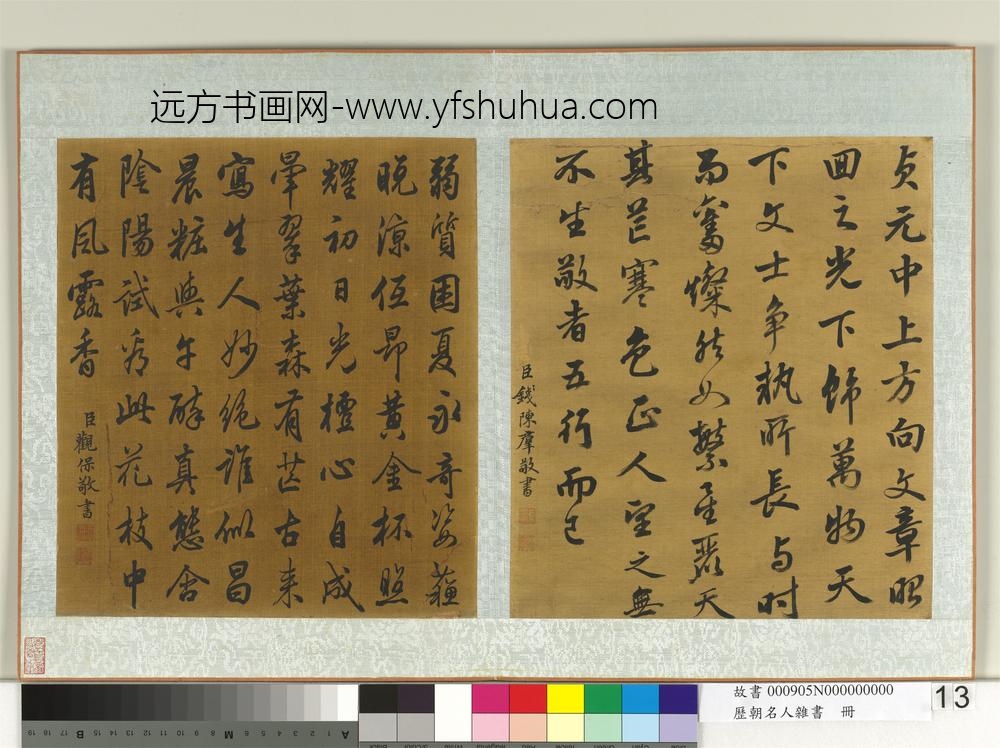 远方书画网-www.yfshuhua.com
貞元中上方向文章昭
回之光下飾萬物天
下文士争執所長与时
而奮燦然如繁星麗天
其芒寒色正人望之無
不生敬者五行而已
臣錢陳羣敬書
弱質困夏永奇姿蘇
晚涼低昂黃金杯照
耀初日光檀心自成
暈翠葉森有芒古来
寫生人妙絕誰似昌
晨粧與午醉真態含
陰陽試看此花枝中
有風露香
臣觀保敬書
故書 000905N000000000
歷朝名人雜書 冊
13